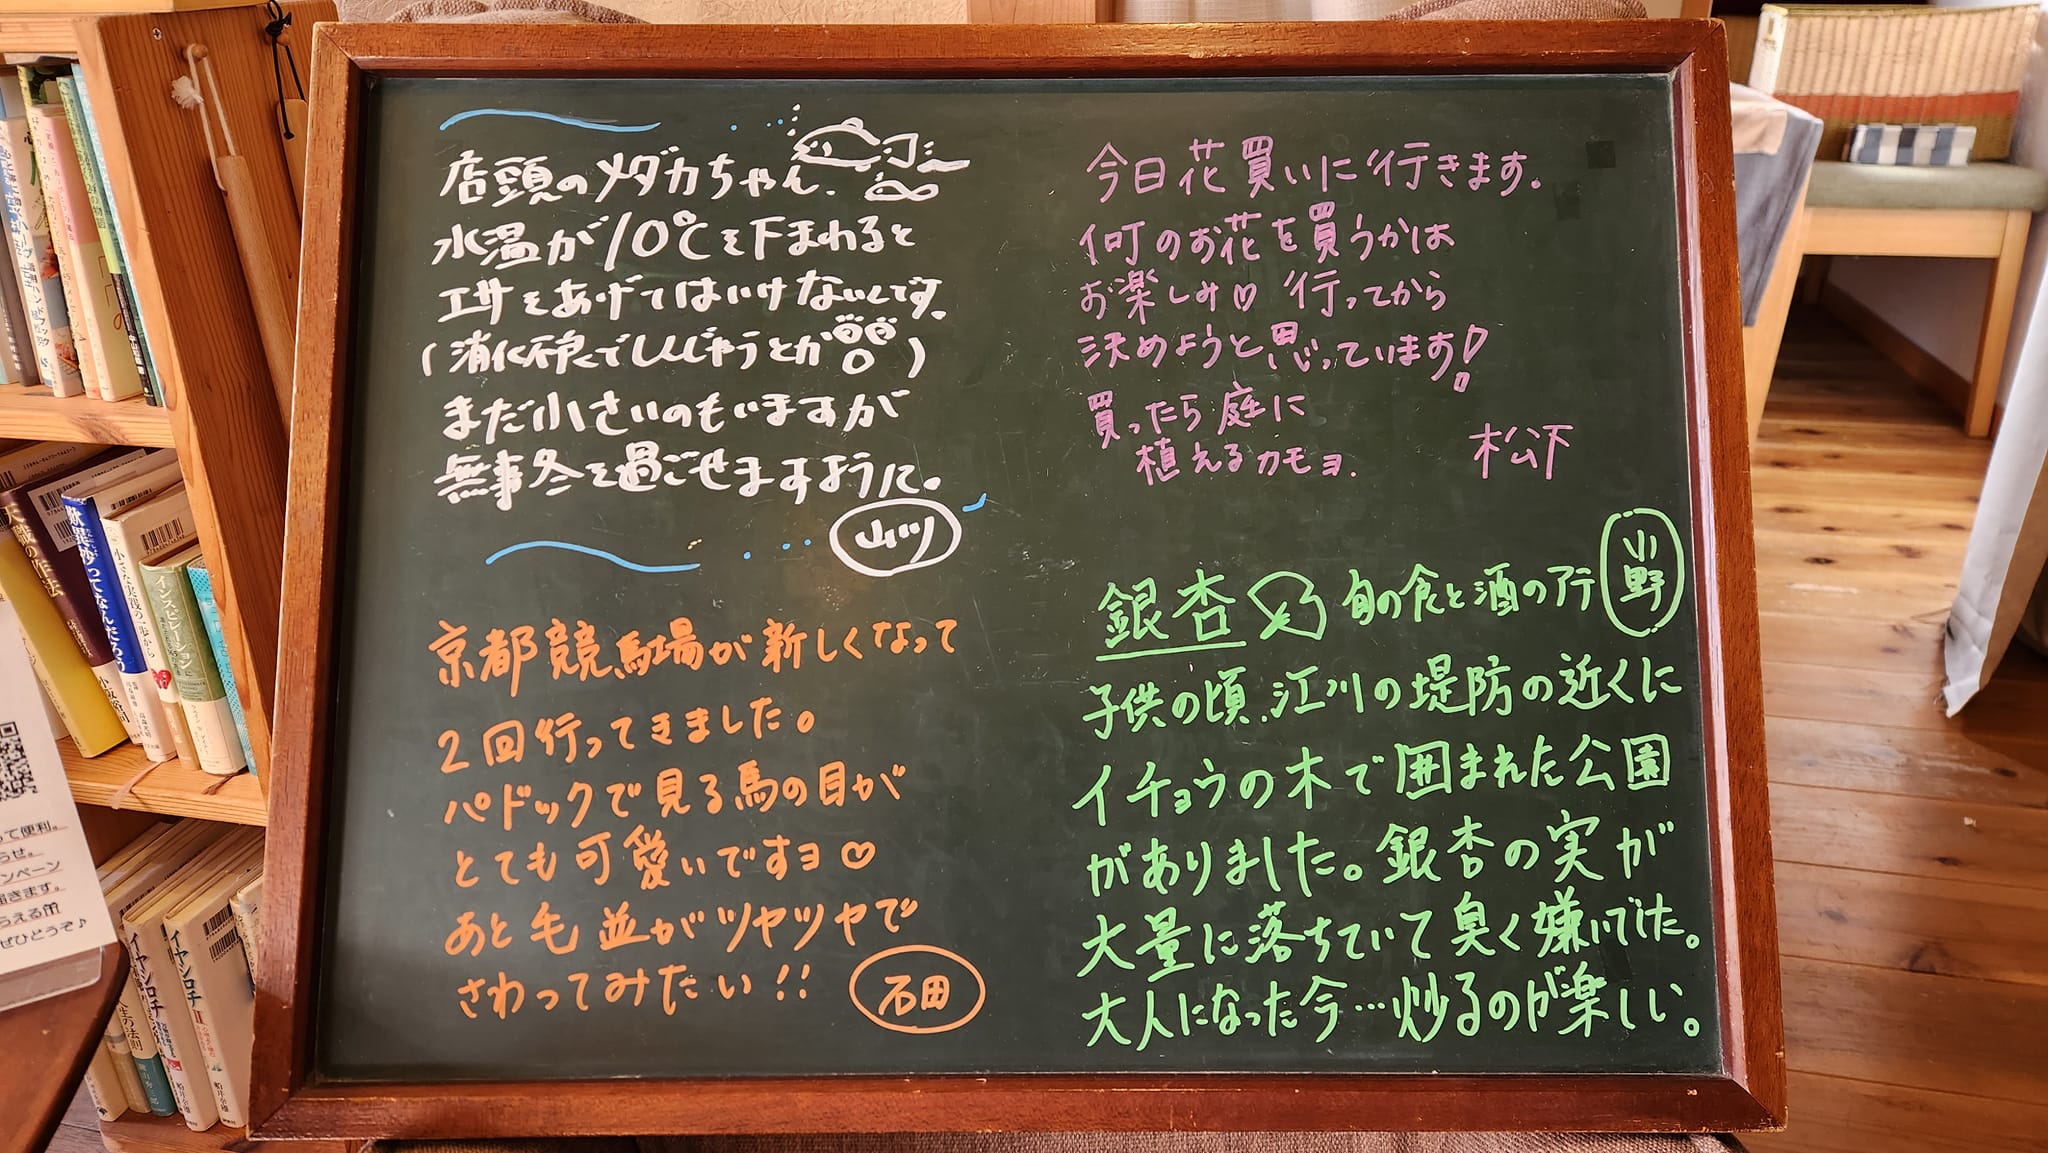 店頭のメダカちゃん、
水温が10℃を下まわると
エサをあげてはいけないんです。
(消化不良でしんじゃうとか )
まだ小さいのもいますが
無事冬を過ごせますように。
山川
京都競馬場が新しくなって
2回行ってきました。
パドックで見る馬の目が
とても可愛いですヨ♡
あと毛並がツヤツヤで
さわってみたい!!
石田
今日花買いに行きます。
何のお花を買うかは
お楽しみ♡ 行ってから
決めようと思っています!
買ったら庭に
植えるカモヨ.
松下
銀杏 旬の食と酒のアテ
小野
子供の頃、江川の堤防の近くに
イチョウの木で囲まれた公園
がありました。銀杏の実が
大量に落ちていて臭く嫌いでした。
大人になった今…炒るのが楽しい。
天職の作法
小さな実践の一歩から
インスピレーション
イヤシロチ
イヤシロチ II
って便利。
らせ。
ンペーン
届きます。
らえる
ぜひどうぞ♪